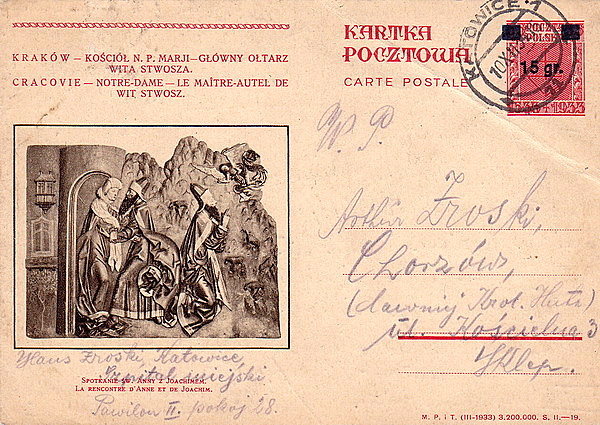 KRAKÓW – KOŚCIÓŁ N. P. MARJI – GŁÓWNY OŁTARZ
WITA STWOSZA.
CRACOVIE – NOTRE-DAME – LE MAÎTRE-AUTEL DE
WIT STWOSZ.
KARTKA
POCZTOWA
CARTE POSTALE
POCZTA
POLSKA
15 gr.
1933
KATOWICE 1
W. P.
Artur Zroski,
Chorzów,
(dawniej Król. Huta)
ul. Kościelna 3
Sklep.
Hans Zroski, Katowice,
Szpital miejski.
Pawilon II. pokój 28.
SPOTKANIE ŚW. ANNY Z JOACHIMEM.
LA RENCONTRE D'ANNE ET DE JOACHIM.
M. P. i T. (III-1933) 3.200.000. S. II.—19.